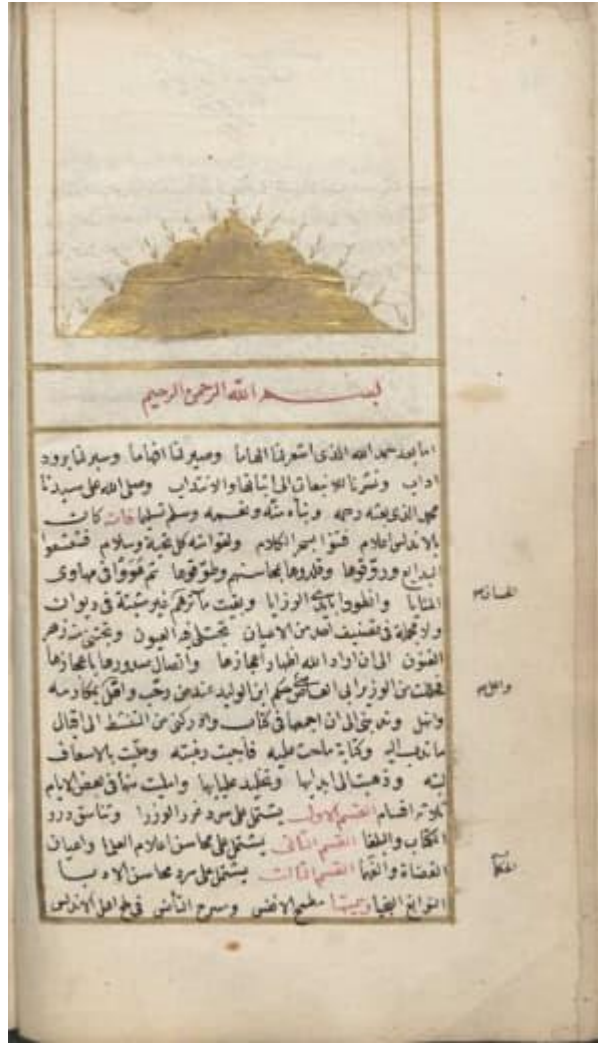 بسم الله الرحمن الرحيم
اما بعد حمد الله الذى اشعرنا الهاما وصيرلنا افهاما وسيرلنا برود
اداب ونشرنا للانبعاث الى اثباتها والانتداب وصلى الله على سيدنا
محمد الذى بعثه رحمه ونبأه منّه ونعمه وسلم تسليما كان
بالاندلس اعلام فتنوا بسحر الكلام ولقوا منه كل تحية وسلام فشعشعوا
البدايع وروقوها وقلدوها بمحاسنهم وطوقوها ثم هووا فى مهاوى
المنايا وانطووا بايدى الرزايا وبقيت مآثرهم غير مثبتة فى ديوان
ولا مجملة فى تصنيف احد من الاعيان تجتلى فيه العيون وتجتنى منه زهر
الفنون الى ان اراد الله اظهار اعجازها واتصال صدورها باعجازها
فحللت من الوزير ابى العاصى حكم ابن الوليد عند من رحب واهل بمكارمه
وانهل وندبنى الى ان اجمعها فى كتاب وادركنى من التنشط الى اقبال
ما ندب اليه وكتابة ما حث عليه فاجبت رغبته وحليت بالاسعاف
لبته وذهبت الى ابدايها وتخليد عليايها وامليت منها فى بعض الايام
ثلاثة اقسام القسم الاول يشتمل على سرد غرر الوزرا وتناسق درر
الكتاب والبلغا القسم الثانى يشتمل على محاسن اعلام العلما واعيان
القضاة والفهما القسم الثالث يشتمل على سرد محاسن الادبا
النوابغ النجبا وسميتها مطمح الانفس ومسرح التأنس فى ملح اهل الاندلس